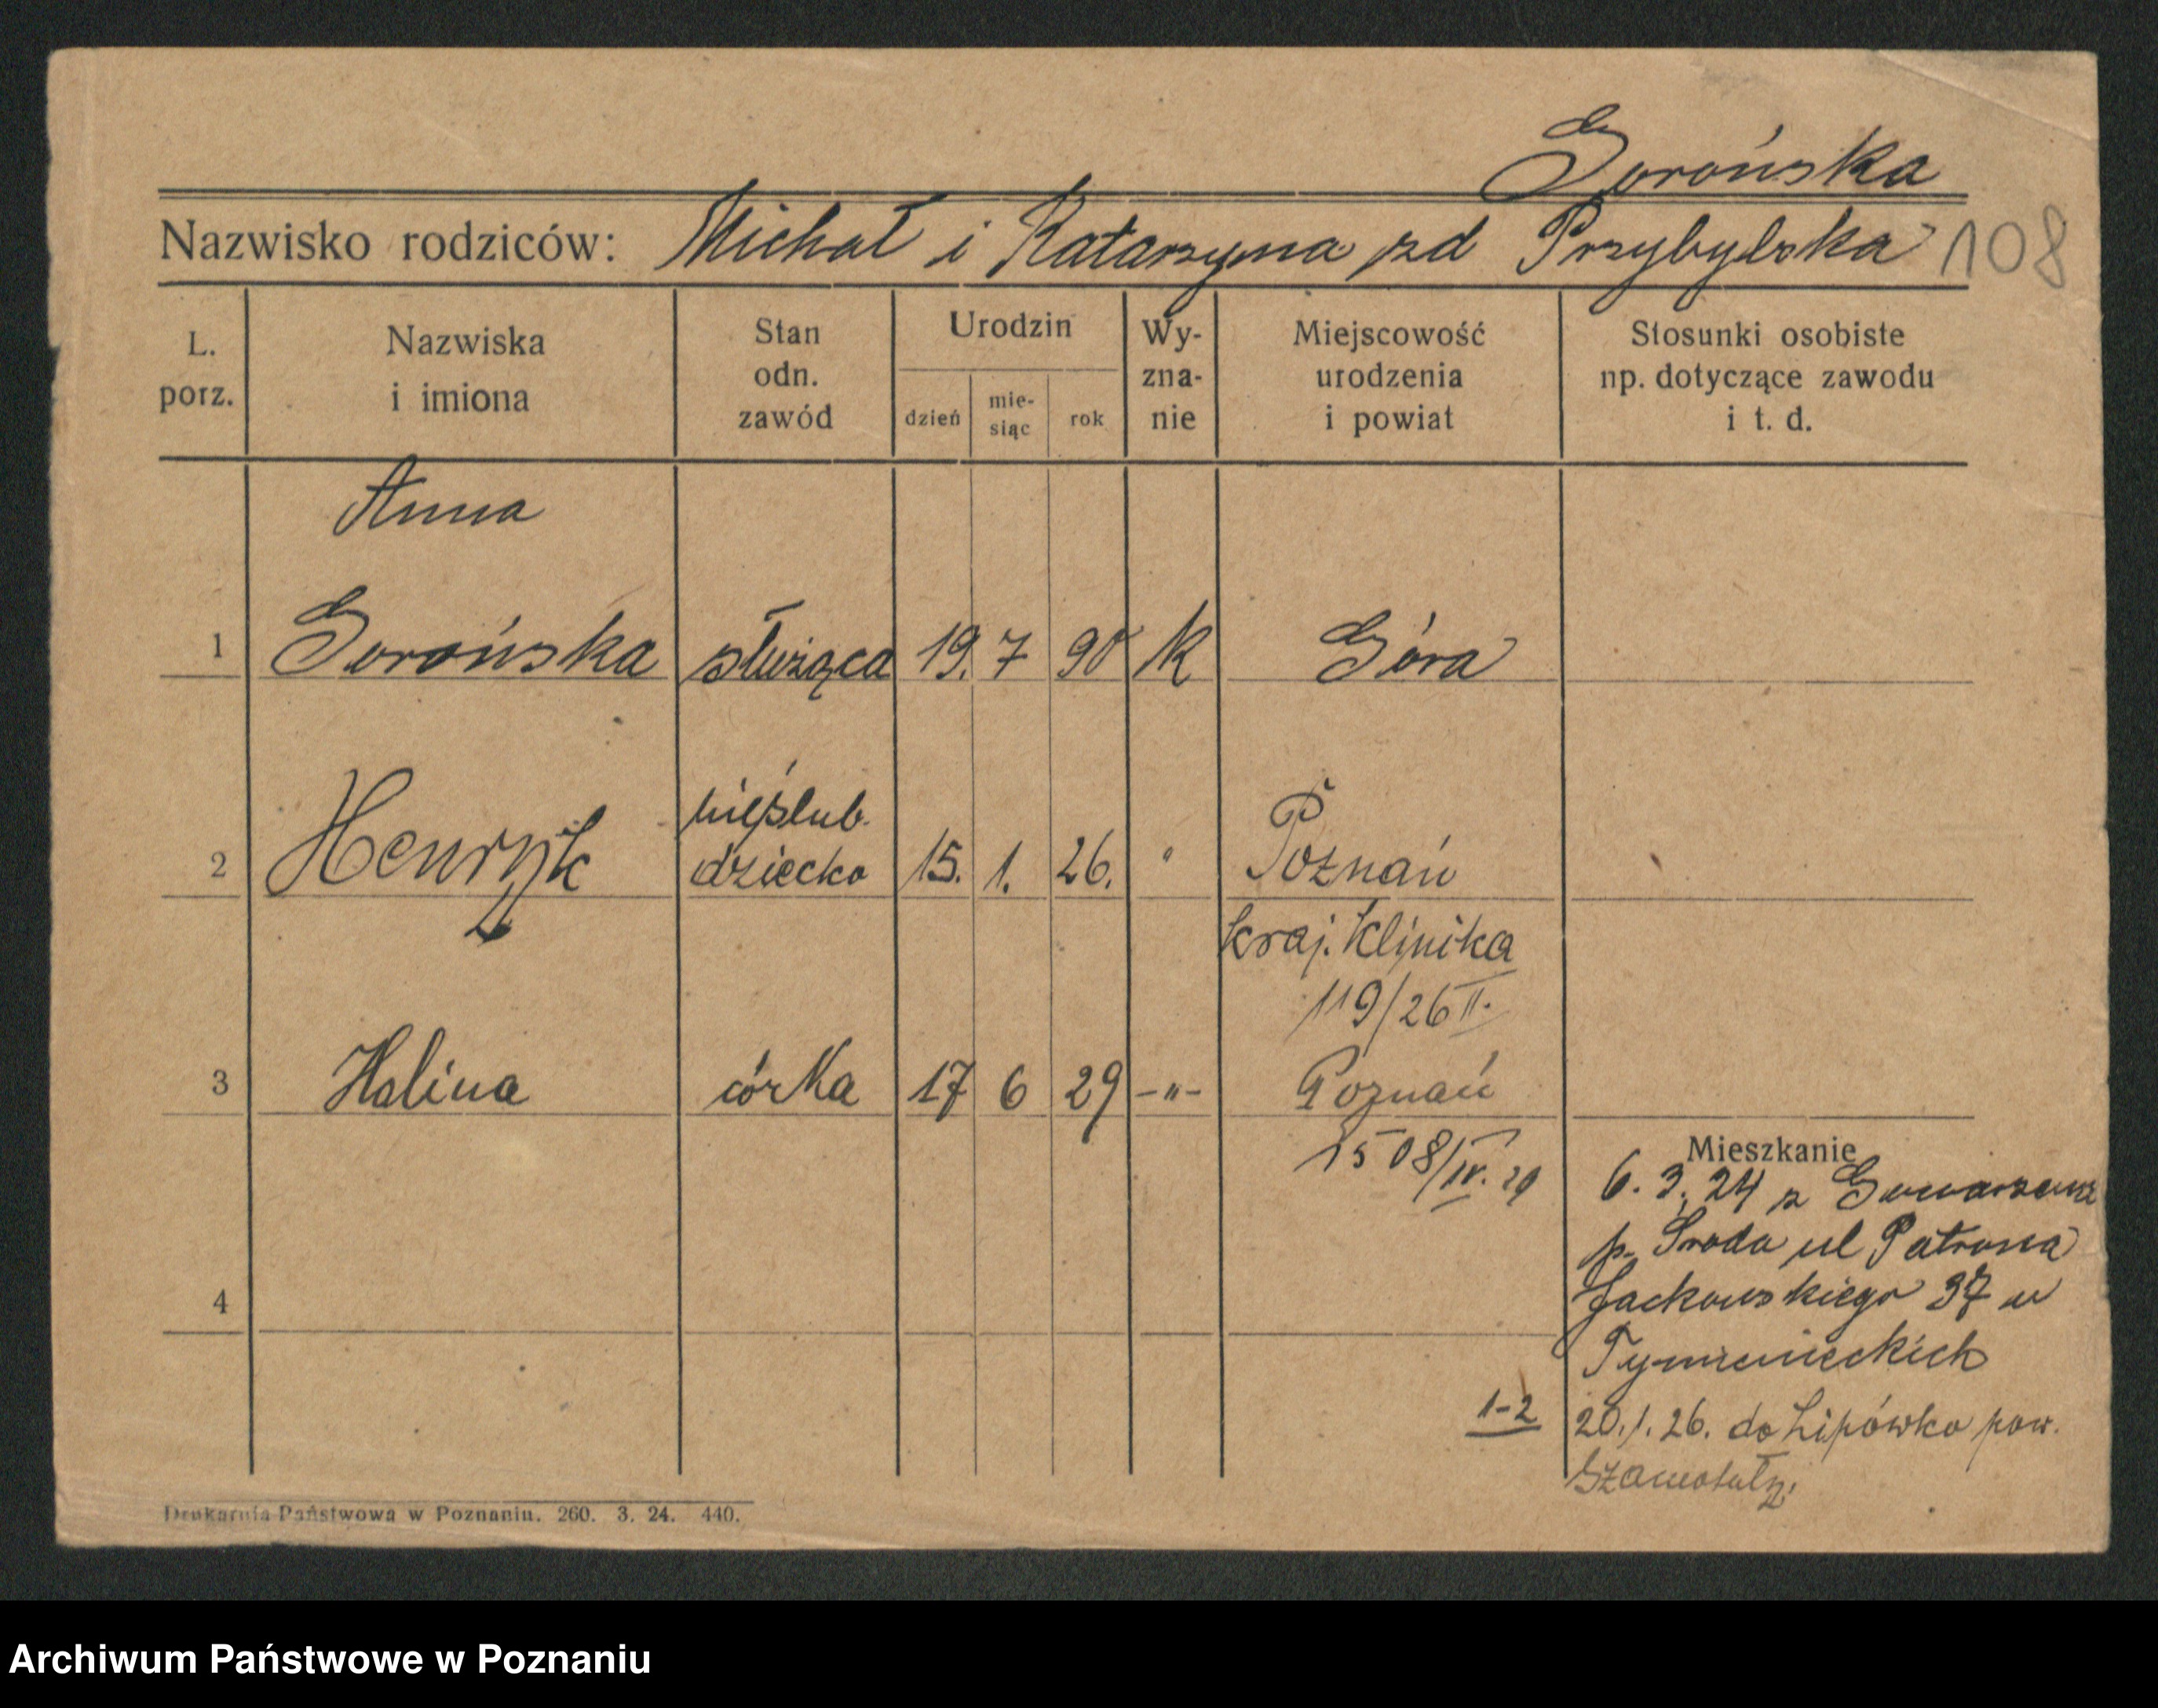 Gorońska
Nazwisko rodziców: Michał i Katarzyna zd Przybylska 108
L. porz.
Nazwiska i imiona
Stan odn. zawód
Urodzin
dzień
mie- siąc
rok
Wy- zna- nie
Miejscowość urodzenia i powiat
Stosunki osobiste np. dotyczące zawodu i t. d.
Anna
1 Gorońska służąca 19. 7 90 K Góra
2 Henryk nieślub. dziecko 15. 1. 26. " Poznań
Kraj. Klinika
119/26 II.
3 Halina córka 17 6 29 -"- Poznań
1508/IV. 29
4
Mieszkanie
6. 3. 24 z
p. Środa ul Patrona
Jackowskiego 37 u
Tymienieckich
1-2 20.1.26. do Lipówko pow.
Szamotuły.
Drukarnia Państwowa w Poznaniu. 260. 3. 24. 440.
Archiwum Państwowe w Poznaniu